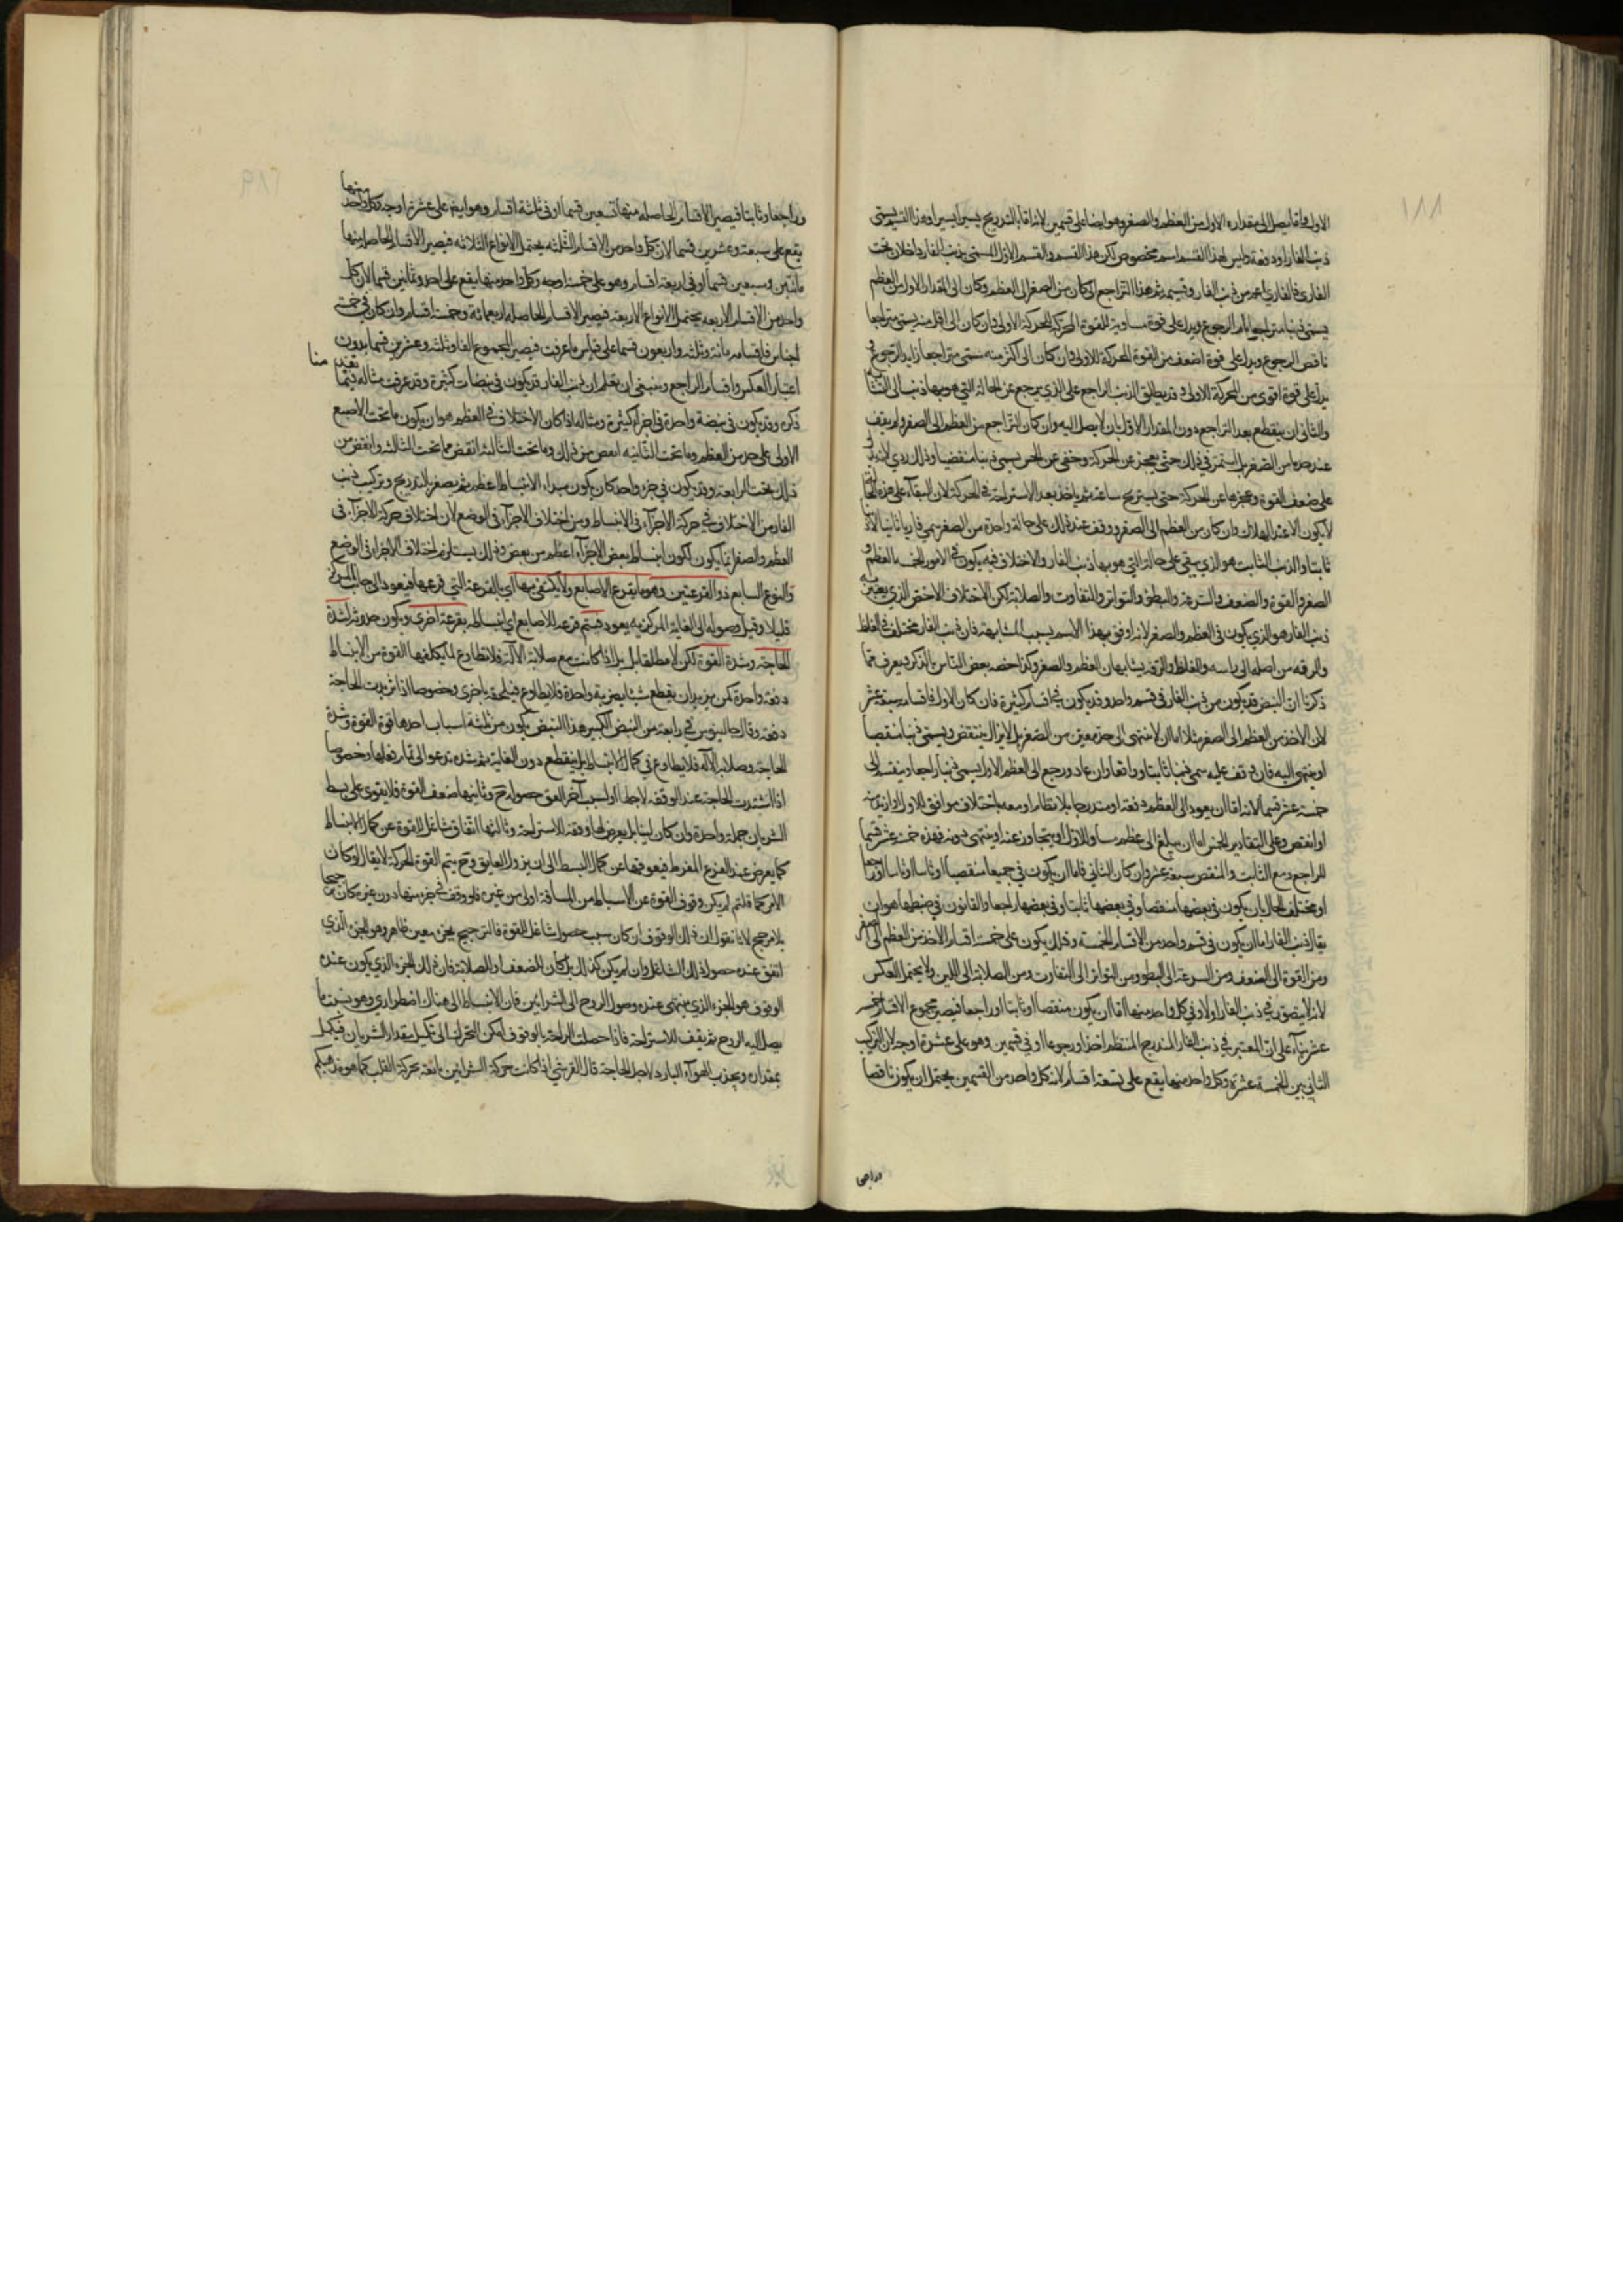 ١٨٨
الاول واما يصل الى مقداره الاول من العظم والصغر وهو ايضا على قسمين لانه اما بالتدريج يسيرا يسيرا وهذا القسم يسمى
ذنب الفار او دفعة وليس لهذا القسم اسم مخصوص لكن هذا القسم والقسم الاول المسمى بذنب الفار داخلان تحت
الفاري فالفاري اعم من ذنب الفار وقسيمه ثم هذا التراجع ان كان من الصغر الى العظم وكان الى المقدار الاول من العظم
يسمى ذنبا متراجعا تام الرجوع ويدل على قوة مساوية للقوة المحركة للحركة الاولى وان كان الى اقل منه يسمى متراجعا
ناقص الرجوع ويدل على قوة اضعف من القوة المحركة للاولى وان كان الى اكثر منه سمى متراجعا زايد الرجوع
يدل على قوة اقوى من المحركة الاولى وقد يطلق الذنب الراجع على الذي يرجع عن الحالة التي هو بها ذنب الى
والثاني ان ينقطع بعد التراجع دون المقدار الاول بان لا يصل اليه وان كان التراجع من العظم الى الصغر ولم يقف
عند حد ما من الصغر بل استمر في ذلك حتى يعجز عن الحركة وخفي عن الحس يسمى ذنبا منقضيا وذلك ردي لانه يدل
على ضعف القوة وعجزها عن الحركة حتى يستريح ساعة ثم ياخذ بعد الاستراحة في الحركة لان البقاء على هذه الحالة
لا يكون الا عند الهلاك وان كان من العظم الى الصغر ووقف عند ذلك على حالة واحدة من الصغر سمي فاريا ثابتا
ثابتا والذنب الثابت هو الذي يبقى على حالته التي هو بها ذنب الفار والاختلاف فيه يكون في الامور الخمسة العظم و
الصغر والقوة والضعف والسرعة والبطؤ والتواتر والتفاوت والصلابة لكن الاختلاف الاخص الذي يعتبر فيه
ذنب الفار هو الذي يكون في العظم والصغر لانه اوفق بهذا الاسم بسبب المشابهة فان ذنب الفار مختلف في الغلظ
والرقه من اصله الى راسه والغلظ والرقة يشابهان العظم والصغر وكذا خصه بعض الناس بالذكر ويعرف مما
ذكرنا ان النبض قد يكون من ذنب الفار في قسم واحد وقد يكون في اقسام كثيرة فان كان الاول فاقسامه سبعة عشر
لان الاخذ من العظم الى الصغر مثلا اما ان لا ينتهى الى حد معين من الصغر بل لا يزال ينتقص ويسمى ذنبا منقصيا
او ينتهي اليه فان وقف عليه سمي ذنبا ثابتا وواقفا وان عاد ورجع الى العظم الاول يسمى ذنبا راجعا وينقسم الى
خمسة عشر قسما لانه اما ان يعود الى العظم دفعة او متدرجا بلا نظام او معه باختلاف موافق للاول او ازيد منه
او انقص وعلى التقادير الخمس اما ان يبلغ الى عظم مساو للاول او يتجاوز عنه او ينتهى دونه فهذه خمسة عشر قسما
للراجع ومع الثابت والمنقص سبعة عشر وان كان الثاني فاما ان يكون في جميعها منقصيا او ثابتا او راجعا
او مختلف الحال بان يكون في بعضها منقصيا وفي بعضها ثابتا وفي بعضها راجعا والقانون في ضبطها هو ان
يقال ذنب الفار اما ان يكون في قسم واحد من الاقسام الخمسة وذلك يكون على خمسة اقسام الاخذ من العظم الى الصغر
ومن القوة الى الضعف ومن السرعة الى البطو ومن التواتر الى التفاوت ومن الصلابة الى اللين ولا يحتمل العكس
لانه لا يتصور في ذنب الفار اولا وفي كل واحد منها اما ان يكون منقصيا او ثابتا او راجعا فيصير مجموع الاقسام خمسه
عشر بناء على ان المعتبر في ذنب الفار المتدرج المنتظم اخذا ورجوعا او في قسمين وهو على عشرة اوجه لان التركيب
الثاني بين الخمسة عشرة وكل واحد منها يقع على تسعة اقسام لانه كل واحد من القسمين يحتمل ان يكون ناقصا
وراجعا
١٨٩
وراجعا وثابتا فيصير الاقسام الحاصله منها تسعين قسما او في ثلثة اقسام وهو ايضا على عشرة اوجه وكل واحد منها
يقع على سبعة وعشرين قسما لان كل واحد من الاقسام الثلثه يحتمل الانواع الثلاثه فيصير الاقسام الحاصله منها
مائتين وسبعين قسما او في اربعة اقسام وهو على خمسة اوجه وكل واحد منها يقع على احد وثمانين قسما لان كل
واحد من الاقسام الاربعه يحتمل الانواع الاربعة فيصير الاقسام الحاصله اربعمائة وخمسة اقسام وان كان في خمسة
اجناس فاقسامه مائة وثلثه واربعون قسما على قياس ما عرفت فيصير المجموع الفا وثلثه وعشرين قسما بدون
اعتبار العكس واقسام الراجع وينبغي ان يعلم ان ذنب الفار قد يكون في نبضات كثيرة وقد عرفت مثاله فيما
ذكره وقد يكون في نبضة واحدة في اجزاء كثيرة ومثاله اذا كان الاختلاف في العظم هو ان يكون ما تحت الاصبع
الاولى على حد من العظم وما تحت الثانيه انقص من ذلك وما تحت الثالثه انقص مما تحت الثالثه وانقص من
ذلك تحت الرابعة وقد يكون في جزء واحد كان يكون مبداء الانبساط اعظم ثم يصغر بالتدريج وتركيب ذنب
الفار من الاختلاف في حركة الاجزاء في الانبساط ومن اختلاف الاجزاء في الوضع لان اختلاف حركة الاجزاء في
العظم والصغر انما يكون لكون انبساط بعض الاجزاء اعظم من بعض وذلك يستلزم اختلاف الاجزاء في الوضع
والنوع السابع ذو القرعتين وهو ما يقرع الاصابع ولا يكتفي بها اي بالقرعة التي قرعها فيعود الى جانب المركز
قليلا وقبل وصوله الى الغاية المركزيه يعود فيتم قرعه الاصابع اي انبساطه بقرعة اخرى ويكون حدوثه لشدة
الحاجة وشدة القوة لكن لا مطلقا بل اذا كانت مع صلابة الالة فلا تطاوع لما يكلفها القوة من الانبساط
دفعة واحدة كمن يريد ان يقطع شيئا بضربة واحدة فلا يطاوع فيلحقه باخرى وخصوصا اذا تزيدت الحاجة
دفعة وقال جالينوس في رابعة من النبض الكبير هذا النبض يكون من ثلثة اسباب احدها قوة القوة وشدة
الحاجة وصلابة الآله فلا يطاوع في كمال الانبساط بل ينقطع دون الغاية ثم شدته تدعو الى تمام فعلها وخصوصا
اذا اشتدت الحاجة عند الوقفه لاجلها او لسبب آخر اتفق حصوله ح وثانيها ضعف القوة فلا يقوى على بسط
الشريان جملة واحدة وان كان لينا بل يعرض لها وقفه للاستراحة وثالثها اتفاق شاغل للقوة عن كمال الانبساط
كما يعرض عند الفزع المفرط فيعوقها عن كمال البسط الى ان يزول العايق وح يتم القوة الحركة لا يقال لو كان
الامر كما قلتم لم يكن وقوف القوة عن الانبساط من المسافة اولى من غيره فلو وقف في جزء منها دون غيره كان ترجيحا
بلا مرجح لانا نقول ان ذلك الوقوف ان كان سبب حصول شاغل للقوة فالترجيح بجزء معين ظاهر وهو الجزء الذي
اتفق عنده حصول ذلك الشاغل وان لم يكن كذلك بل كان للضعف او الصلابة فان ذلك الجزء الذي يكون عنده
الوقوف هو الجزء الذي ينتهى عنده وصول الروح الى الشرائين فان الانبساط الى هناك اضطراري وهو بقدر ما
يصل اليه الروح ثم يقف للاستراحة فاذا حصلت الراحة بالوقوف امكن التحرك الى تكميل مقدار الشريان فيكمل
مقداره ويجذب الهواء البارد لاجل الحاجة قال القرشي اذا كانت حركة الشرائين تابعة بحركة القلب كما هو مذهبكم